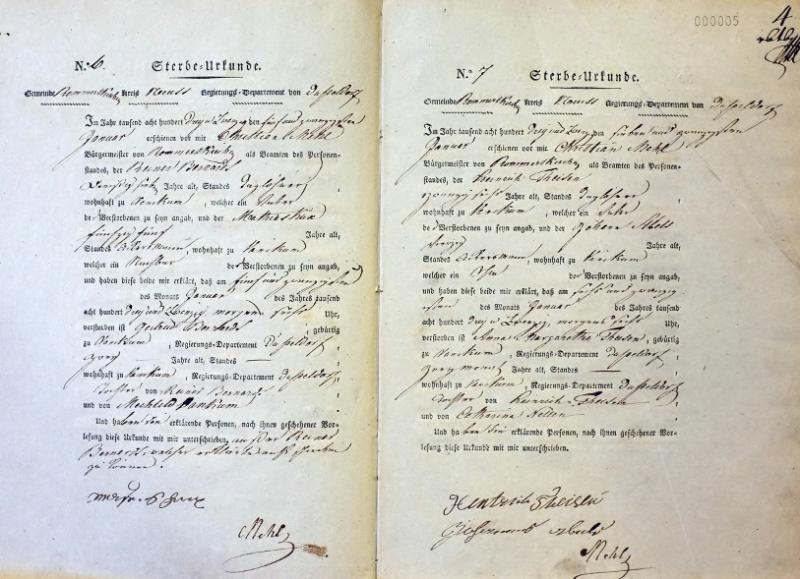 N.º 6. Sterbe-Urkunde.
Gemeinde Rommerskirchen Kreis Neuss Regierungs-Departement von Düsseldorf
Im Jahr tausend acht hundert drey u zwanzig den fünf und zwanzigsten
Januar erschienen vor mir Christian Mehl
Bürgermeister von Rommerskirchen als Beamten des Personen-
standes, der Reiner Bernards
Jahre alt, Standes Taglöhner
wohnhaft zu welcher ein Vater
der Verstorbenen zu seyn angab, und der
fünfzig fünf Jahre alt,
Standes Ackersmann, wohnhaft zu
welcher ein Nachbar der Verstorbenen zu seyn angab,
und haben diese beide mir erklärt, daß am fünf und zwanzigsten
des Monats Januar des Jahres tausend
acht hundert drey und zwanzig, morgens sechs Uhr,
verstorben ist Gertrud Bernards, gebürtig
zu Regierungs-Departement Düsseldorf
Jahre alt, Standes —
wohnhaft zu Regierungs-Departement Düsseldorf,
Tochter von Reiner Bernards
und von Mechtild
Und haben die erklärende Personen, nach ihnen geschehener Vor-
lesung diese Urkunde mit mir unterschrieben, außer Reiner
Bernards, welcher erklärte nicht schreiben
zu können.
Mehl
000005
4
N.º 7 Sterbe-Urkunde.
Gemeinde Rommerskirchen Kreis Neuss Regierungs-Departement von Düsseldorf
Im Jahr tausend acht hundert drey u zwanz den sieben und zwanzigsten
Januar erschienen vor mir Christian Mehl
Bürgermeister von Rommerskirchen als Beamten des Personen-
standes, der Heinrich Theisen
zwanzig sechs Jahre alt, Standes Taglöhner
wohnhaft zu welcher ein Vater
der Verstorbenen zu seyn angab, und der
vierzig Jahre alt,
Standes Ackersmann, wohnhaft zu
welcher ein Ohm der Verstorbenen zu seyn angab,
und haben diese beide mir erklärt, daß am sechs und zwanzig-
sten des Monats Januar des Jahres tausend
acht hundert drey u zwanzig, morgens sechs Uhr,
verstorben ist Anna Margaretha Theisen, gebürtig
zu Regierungs-Departement Düsseldorf,
zwey Monat Jahre alt, Standes —
wohnhaft zu Regierungs-Departement Düsseldorf
Tochter von Heinrich Theisen
und von Catharina Nellen
Und haben die erklärende Personen, nach ihnen geschehener Vor-
lesung diese Urkunde mit mir unterschrieben.
Hentrich Theisen
Mehl